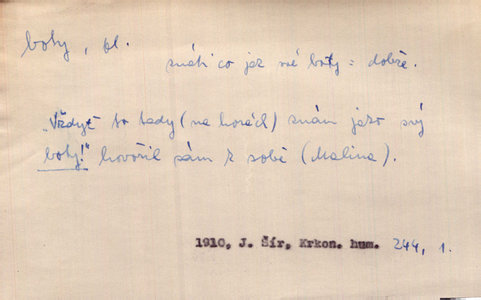 boty, pl.
znáti co jak své boty = dobře.
„Vždyť to tady (na horách) znám jako svý
boty!" hovořil sám k sobě (Malina).
1910, J. Šír, Krkon. hum. 244, 1.